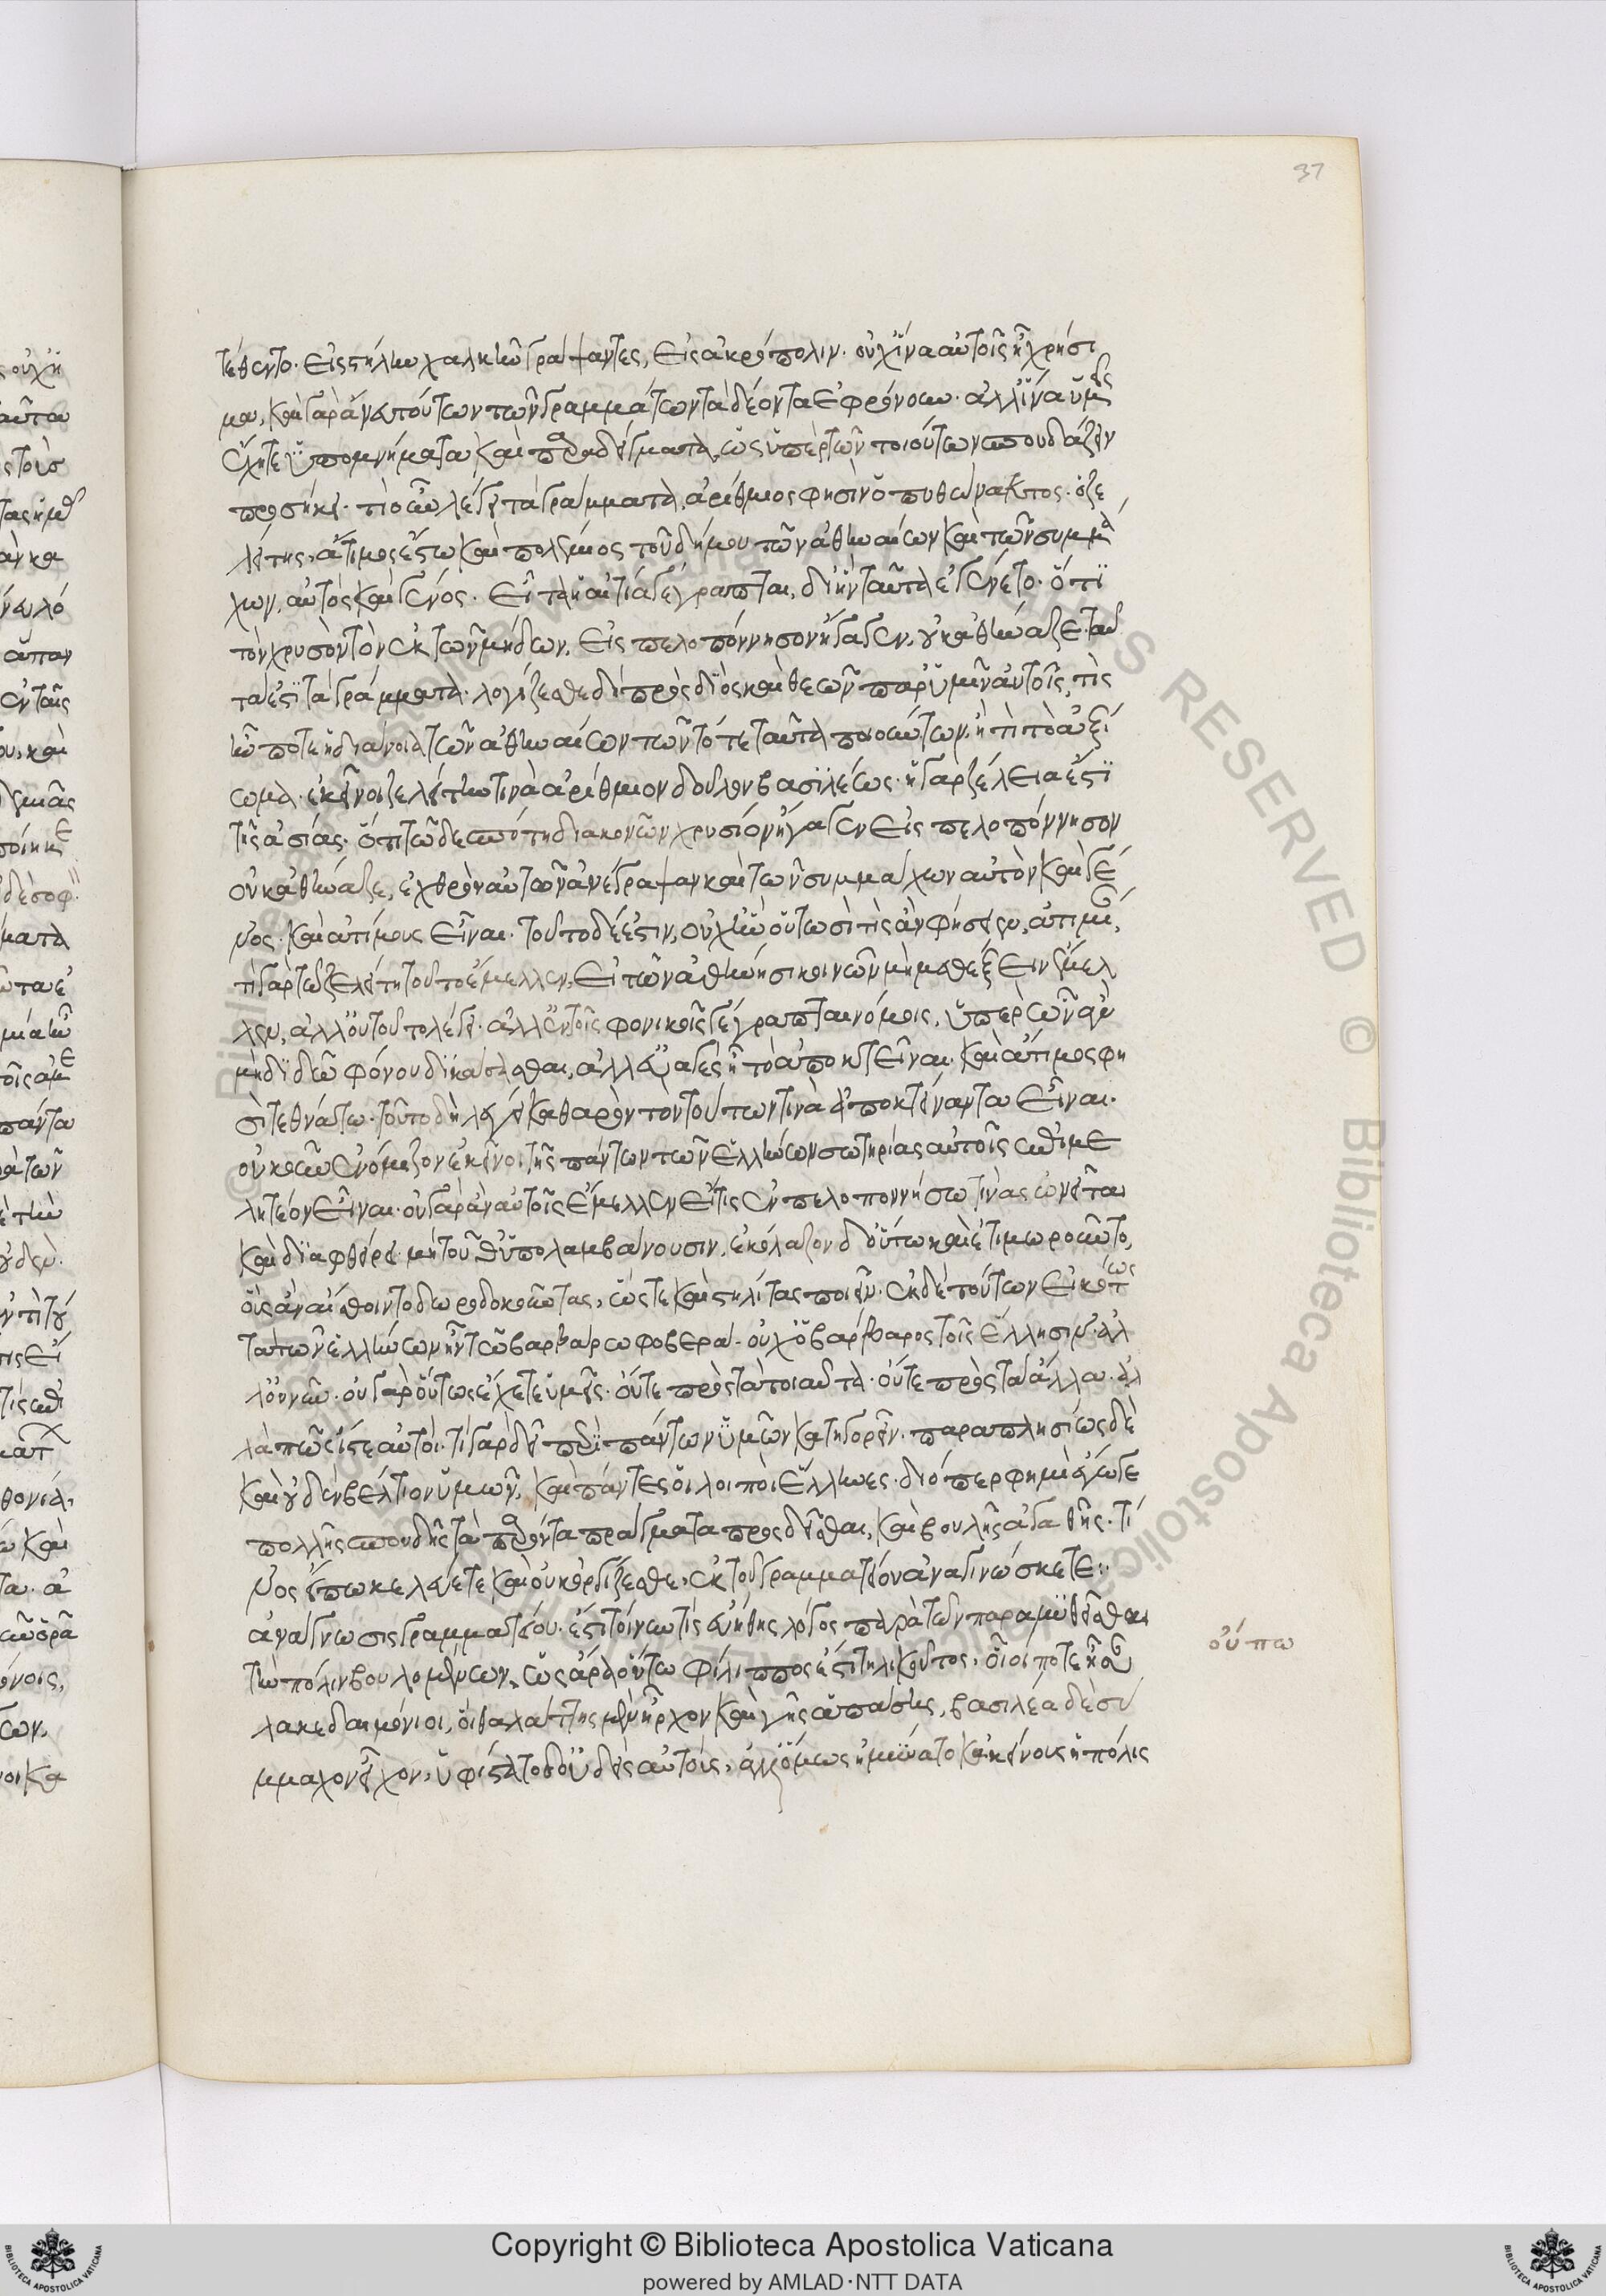 37
τέθεντο· εἰς στήλην χαλκῆν γράψαντες, εἰς ἀκρόπολιν· οὐχ ἵνα αὐτοῖς ᾖ χρήσι
μα, καὶ γὰρ ἄνευ τούτων τῶν γραμμάτων τὰ δέοντα ἐφρόνουν· ἀλλ' ἵνα ὑμεῖς
ἔχητε ὑπομνήματα καὶ παραδείγματα, ὡς ὑπὲρ τῶν τοιούτων σπουδάζειν
προσήκει· τί οὖν λέγει τὰ γράμματα, ἀρίθμιος φησὶν ὁ πυθώνακτος· ὁ ζε
λείτης, ἄτιμος ἔστω καὶ πολέμιος τοῦ δήμου τῶν ἀθηναίων καὶ τῶν συμμά
χων, αὐτὸς καὶ γένος· εἶτα ἡ αἰτία γέγραπται, δι' ἣν ταῦτα ἐγένετο· ὅτι
τὸν χρυσὸν τὸν ἐκ τῶν μήδων, εἰς πελοπόννησον ἤγαγεν, οὐκ ἀθήναζε· ταῦ
τα ἐστὶ τὰ γράμματα· λογίζεσθε δὴ πρὸς διὸς καὶ θεῶν παρ' ὑμῖν αὐτοῖς, τίς
ἦν ποτε ἡ διάνοια τῶν ἀθηναίων τῶν τότε ταῦτα ποιούντων, ἢ τί τὸ ἀξί
ωμα· ἐκεῖνοι ζελείτην τινὰ ἀρίθμιον δοῦλον βασιλέως· ἡ γὰρ ζέλειά ἐστι
τῆς ἀσίας· ὅτι τῷ δεσπότῃ διακονῶν χρυσίον ἤγαγεν εἰς πελοπόννησον
οὐκ ἀθήναζε, ἐχθρὸν αὐτῶν ἀνέγραψαν καὶ τῶν συμμάχων αὐτὸν καὶ γέ
νος· καὶ ἀτίμους εἶναι· τοῦτο δέ ἐστιν, οὐχ ἣν οὑτωσί τις ἂν φήσειεν, ἀτιμίαν,
τί γὰρ τῷ ζελείτῃ τοῦτο ἔμελλεν, εἰ τῶν ἀθήνησι κοινῶν μὴ μεθέξειν ἔμελ
λεν, ἀλλ' οὐ τοῦτο λέγει· ἀλλ' ἐν τοῖς φονικοῖς γέγραπται νόμοις, ὑπὲρ ὧν ἂν
μὴ διδῷ φόνου δικάσασθαι, ἀλλ' εὐαγὲς ᾖ τὸ ἀποκτεῖναι· καὶ ἄτιμος φη
σὶ τεθνάτω· τοῦτο δὴ λέγει καθαρὸν τὸν τούτων τινὰ ἀποκτείναντα εἶναι·
οὐκοῦν ἐνόμιζον ἐκεῖνοι τῆς πάντων τῶν ἑλλήνων σωτηρίας αὐτοῖς ἐπιμε
λητέον εἶναι· οὐ γὰρ ἂν αὐτοῖς ἔμελλεν εἴ τις ἐν πελοποννήσῳ τινὰς ὠνεῖται
καὶ διαφθείρει· μὴ τοῦθ' ὑπολαμβάνουσιν, ἐκόλαζον δ' οὕτω καὶ ἐτιμωροῦντο,
οὓς ἂν αἴσθοιντο δωροδοκοῦντας, ὥστε καὶ στηλίτας ποιεῖν· ἐκ δὲ τούτων εἰκότως
τὰ τῶν ἑλλήνων ἦν τῷ βαρβάρῳ φοβερά· οὐχ ὁ βάρβαρος τοῖς ἕλλησιν· ἀλ
λ' οὐ νῦν· οὐ γὰρ οὕτως ἔχετε ὑμεῖς· οὔτε πρὸς τὰ τοιαῦτα· οὔτε πρὸς τὰ ἄλλα· ἀλ
λὰ πῶς ἴστε αὐτοί· τί γὰρ δεῖ περὶ πάντων ὑμῶν κατηγορεῖν· παραπλησίως δὲ
καὶ οὐδὲν βέλτιον ὑμῶν, καὶ πάντες οἱ λοιποὶ ἕλληνες· διόπερ φημὶ ἔγωγε
πολλῆς σπουδῆς τὰ παρόντα πράγματα προσδεῖσθαι, καὶ βουλῆς ἀγαθῆς· τί
νος εἴπω κελεύετε καὶ οὐκ ὀργίζεσθε, ἐκ τοῦ γραμματείου ἀναγινώσκετε:·
ἀνάγνωσις γραμματείου· ἔστι τοίνυν τις εὐήθης λόγος παρὰ τῶν παραμυθεῖσθαι
τὴν πόλιν βουλομένων, ὡς ἄρα οὔπω φίλιππος ἐστὶ τηλικοῦτος, οἷοί ποτε ἦσαν
λακεδαιμόνιοι, οἳ θαλάττης μὲν ἦρχον καὶ γῆς ἁπάσης, βασιλέα δὲ σύ
μμαχον εἶχον, ὑφίστατο δ' οὐδεὶς αὐτούς, ἀλλ' ὅμως ἠμύνατο κἀκείνους ἡ πόλις
οὔπω
Copyright © Biblioteca Apostolica Vaticana
powered by AMLAD·NTT DATA